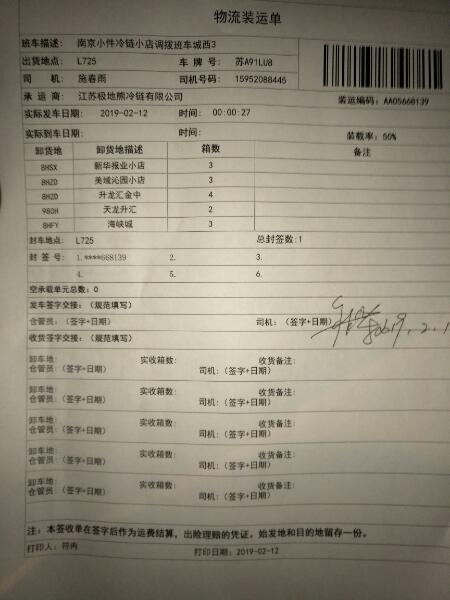 物流装运单
班车描述： 南京小件冷链小店调拨班车城西3
出货地点： L725 车 牌 号： 苏A91LU8
司 机： 施春雨 司机号码： 15952088445
承 运 商： 江苏极地熊冷链有限公司 装运编码：AA05668139
实际发车日期： 2019-02-12 时间： 00:00:27
实际到车日期： 时间： 装载率：50%
卸货地 卸货地描述 箱数 备注
8HSX 新华报业小店 3
8HZD 美域沁园小店 3
8H2D 升龙汇金中 4
980H 天龙升汇 2
8HFY 海峡城 3
封车地点： L725 总封签数：1
封 签 号： 1.****668139 2. 3.
4. 5. 6.
空承载单元总数：0
发车签字交接：（规范填写）
仓管员：（签字+日期） 司机：（签字+日期） 2019.2.1
收货签字交接：（规范填写）
卸车地： 实收箱数： 收货备注：
仓管员：（签字+日期） 司机：（签字+日期）
卸车地： 实收箱数： 收货备注：
仓管员：（签字+日期） 司机：（签字+日期）
卸车地： 实收箱数： 收货备注：
仓管员：（签字+日期） 司机：（签字+日期）
卸车地： 实收箱数： 收货备注：
仓管员：（签字+日期） 司机：（签字+日期）
卸车地： 实收箱数： 收货备注：
仓管员：（签字+日期） 司机：（签字+日期）
注：本签收单在签字后作为运费结算，出险理赔的凭证。始发地和目的地留存一份。
打印人：符冉 打印日期：2019-02-12